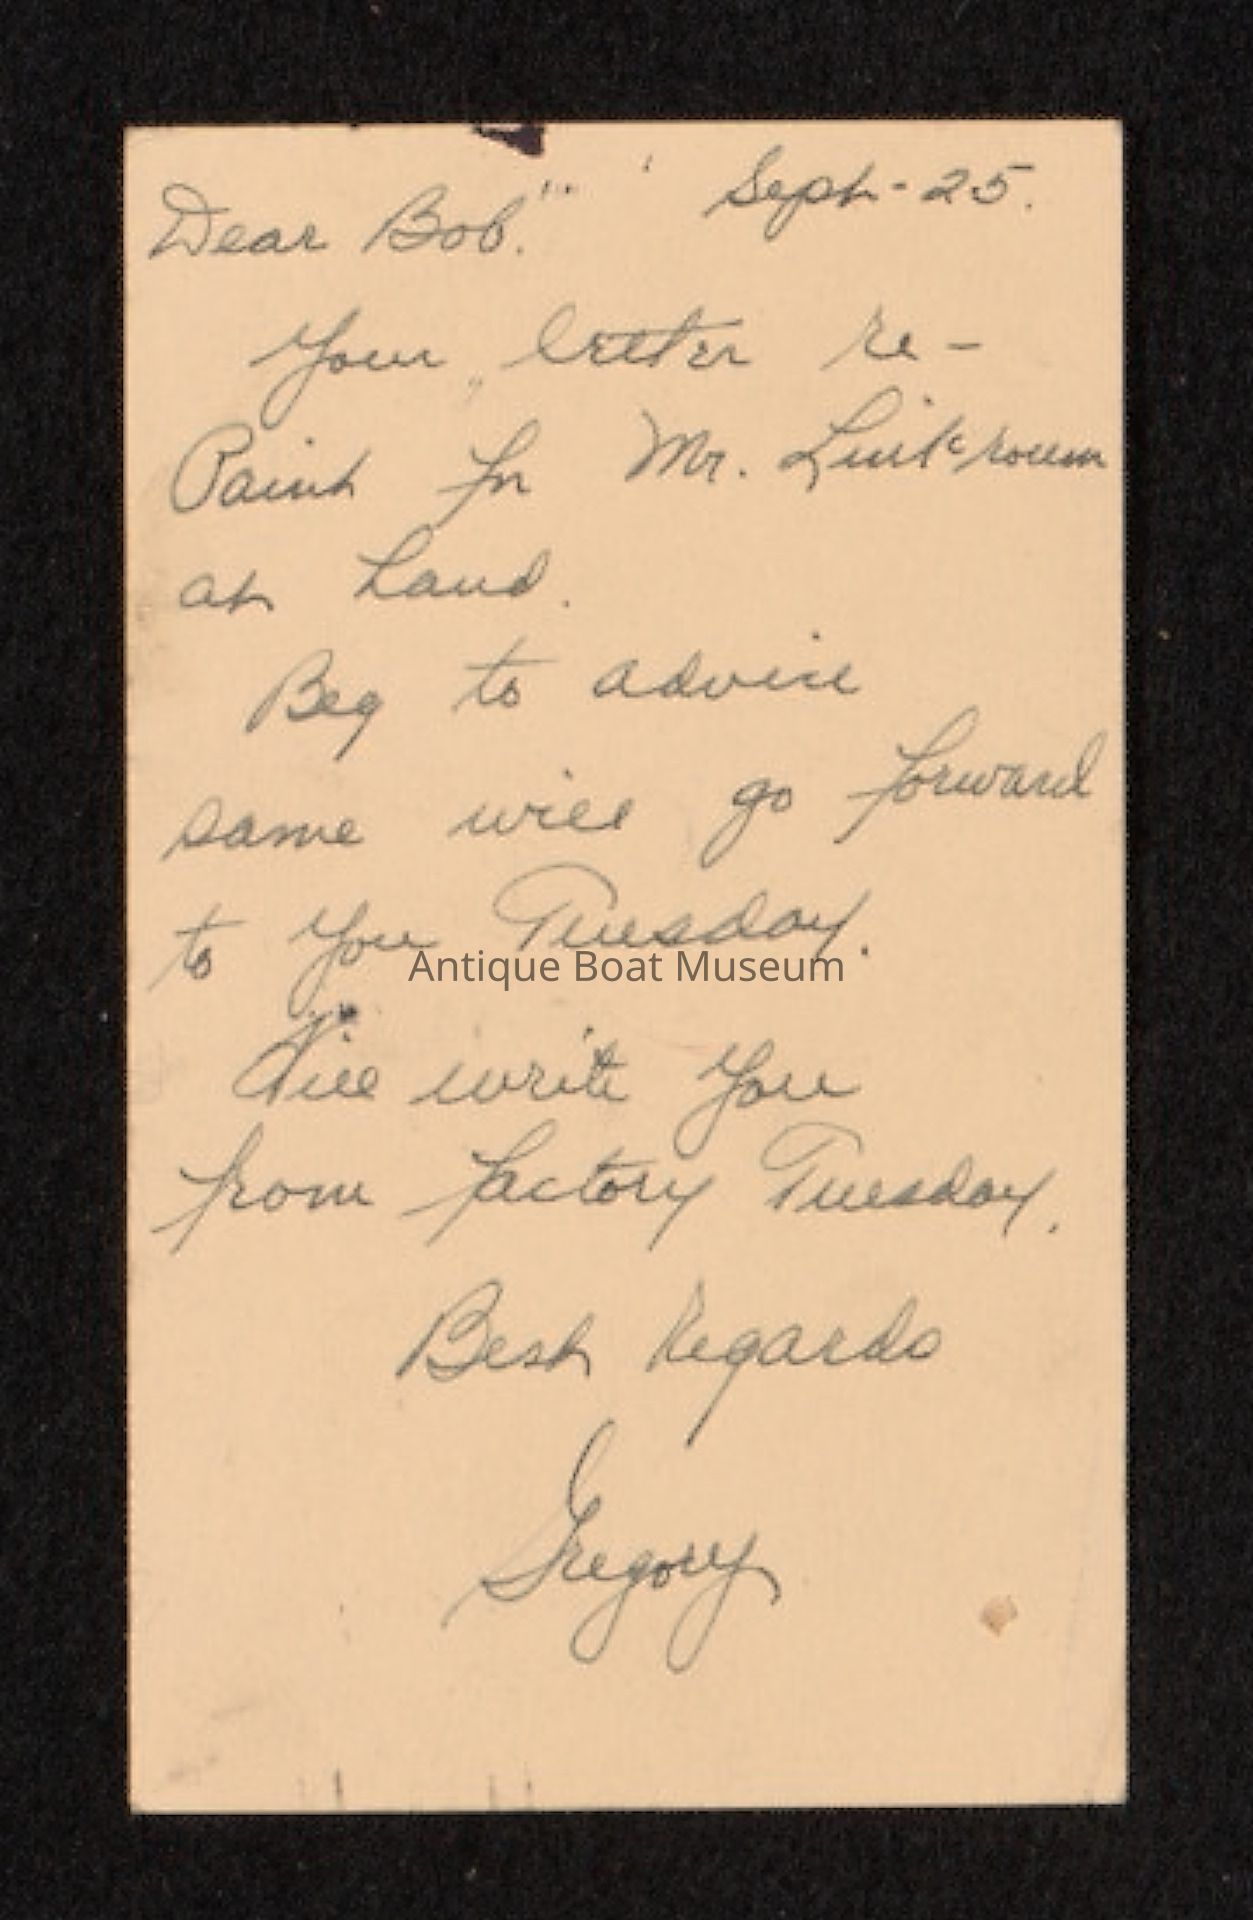 Sept - 25.
Dear Bob.
Your letter re -
Paint for Mr.
at hand.
Beg to advise
same will go forward
to you Tuesday.
Antique Boat Museum
Will write you
from factory Tuesday.
Best Regards
Gregory